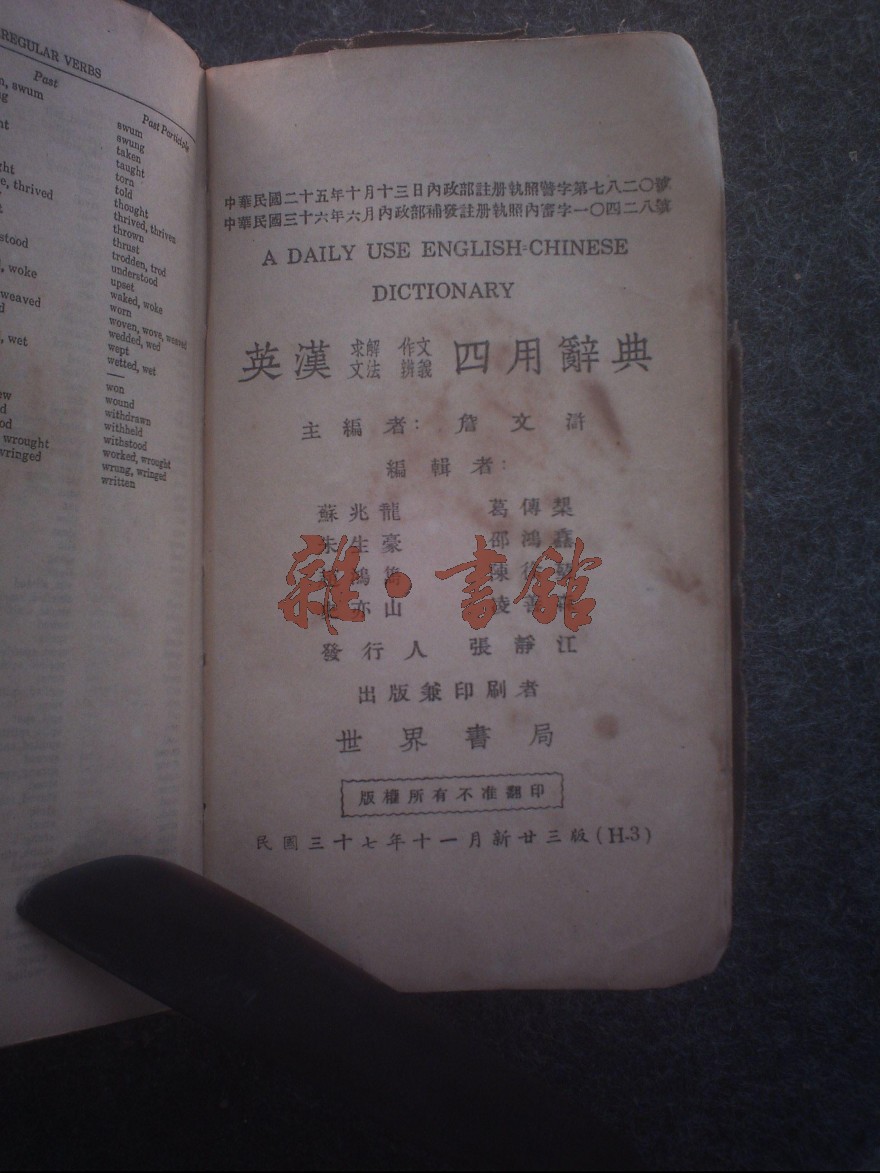 REGULAR VERBS
Past
Past Participle
swum
swum
swung
taken
taught
torn
told
thought
thrived
thrived, thriven
thrown
thrust
trodden, trod
understood
upset
woke
waked, woke
worn
weaved
woven, wove, weaved
wedded, wed
wept
wet
wetted, wet
—
won
wound
withdrawn
withheld
withstood
wrought
worked, wrought
wringed
wrung, wringed
written
中華民國二十五年十月十三日內政部註册執照警字第七八二〇號
中華民國三十六年六月內政部補發註册執照內審字一〇四二八號
A DAILY USE ENGLISH-CHINESE
DICTIONARY
英漢 求解 作文 文法 辨義 四用辭典
主編者: 詹文滸
編輯者:
蘇兆龍 葛傳槼
朱生豪 邵鴻馫
鴻雋 陳徐
亦山 凌善
雜·書館
發行人 張靜江
出版兼印刷者
世界書局
版權所有不准翻印
民國三十七年十一月新廿三版(H.3)